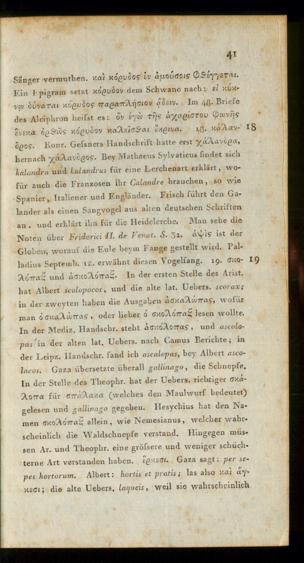 41
Sänger vermuthen. καὶ κόρυδος ἐν ἀμούσοις φθέγγεται.
Ein Epigram setzt κόρυδον dem Schwane nach: εἰ κύκ-
νῳ δύναται κόρυδος παραπλήσιον ᾄδειν. Im 48. Briefe
des Alciphron heisst es: ὃν ἐγὼ τῆς ἀχαρίστου φωνῆς
ἕνεκα ὀρθῶς κόρυδον καλεῖσθαι ἔκρινα. 18. κάλαν- 18
δρος. Konr. Gesners Handschrift hatte erst χαλάνδρα,
hernach χάλανδρος. Bey Matheeus Sylvaticus findet sich
kalandra und kalandrus für eine Lerchenart erklärt, wo-
für auch die Franzosen ihr Calandre brauchen, so wie
Spanier, Italiener und Engländer. Frisch führt den Ga-
lander als einen Sangvogel aus alten deutschen Schriften
an, und erklärt ihn für die Heidelerche. Man sehe die
Noten über Friderici II. de Venat. S. 32. ἀψὶς ist der
Globen, worauf die Eule beym Fange gestellt wird. Pal-
ladius Septemb. 12. erwähnt diesen Vogelfang. 19. σκο- 19
λόπαξ und ἀσκολόπαξ. In der ersten Stelle des Arist.
hat Albert scolopocos, und die alte lat. Uebers. scorax;
in der zweyten haben die Ausgaben ἀσκαλώπας, wofür
man ὁ σκαλώπας, oder lieber ὁ σκολόπαξ lesen wollte.
In der Mediz. Handschr. steht ἀσκολόπας, und ascolo-
pas in der alten lat. Uebers. nach Camus Berichte; in
der Leipz. Handschr. fand ich ascalopas, bey Albert asco-
lacos. Gaza übersetzte überall gallinago, die Schnepfe.
In der Stelle des Theophr. hat der Uebers. richtiger σκά-
λοπα für σπάλακα (welches den Maulwurf bedeutet)
gelesen und gallinago gegeben. Hesychius hat den Na-
men σκολόπαξ allein, wie Nemesianus, welcher wahr-
scheinlich die Waldschnepfe verstand. Hingegen müs-
sen Ar. und Theophr. eine grössere und weniger schüch-
terne Art verstanden haben. ἕρκεσι. Gaza sagt: per se-
pes hortorum. Albert: hortis et pratis; las also καὶ ἄγ-
κεσι; die alte Uebers. laqueis, weil sie wahrscheinlich